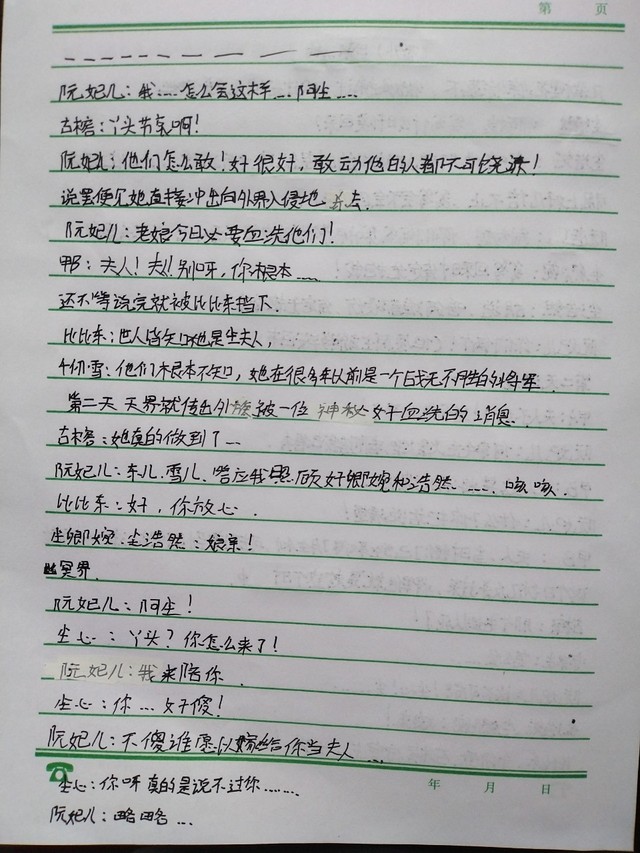 第 页
阮妃儿：我……怎么会这样……阿尘……
古榕：丫头节哀啊！
阮妃儿：他们怎么敢！好很好，敢动他的人都不可饶恕！
说罢便见她直接冲出向外界入侵地 杀去.
阮妃儿：老娘今日必要血洗他们！
甲：夫人！夫人别呀，你根本……
还不等说完就被比比东挡下.
比比东：世人皆知她是尘夫人，
千仞雪：他们根本不知，她在很多年以前是一个战无不胜的将军
第二天 天界就传出外族被一位 神秘女子血洗的消息.
古榕：她真的做到了…
阮妃儿：东儿.雪儿.答应我照顾好卿婉和浩然……咳咳.
比比东：好，你放心.
尘卿婉.尘浩然：娘亲！
冥界.
阮妃儿：阿尘！
尘心：丫头？你怎么来了！
阮妃儿：我来陪你
尘心：你…好傻！
阮妃儿：不傻谁愿以嫁给你当夫人…
年 月 日
尘心：你呀真的是说不过你……
阮妃儿：略略…